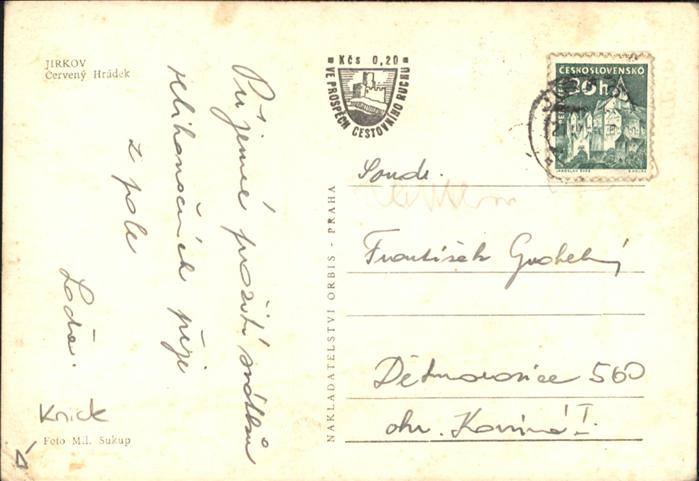 JIRKOV
Červený Hrádek
Kčs 0,20
VE PROSPĚCH CESTOVNÍHO RUCHU
ČESKOSLOVENSKO
30h
Příjemné prožití svátků
velikonočních přeje
z pole
Loďa.
Knick
Foto Mil. Sukup
NAKLADATELSTVÍ ORBIS - PRAHA
Soudr.
František
Dětmarovice 560
okr. Karviná I.